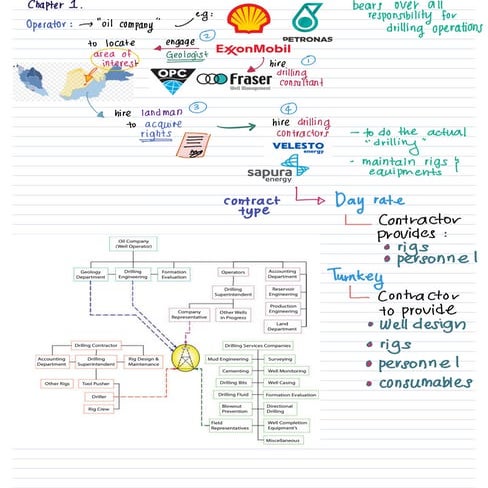 Chapter 1.
Operator : → "oil company" → eg:
bears over all
responsibility for
drilling operations
PETRONAS
ExxonMobil
① hire
drilling
consultant
OPC
Fraser
Well Management
② engage
Geologist
to locate
area of
interest
hire landman ③
to acquire
rights
④
hire drilling
contractors
VELESTO
energy
sapura
energy
- to do the actual
"drilling"
- maintain rigs &
equipments
contract
type
Day rate
Contractor
provides :
• rigs
• personnel
Turnkey
Contractor
to provide
• well design
• rigs
• personnel
• consumables
Oil Company
(Well Operator)
Geology
Department
Drilling
Engineering
Formation
Evaluation
Operators
Accounting
Department
Drilling
Superintendent
Reservoir
Engineering
Company
Representative
Other Wells
in Progress
Production
Engineering
Land
Department
Drilling Contractor
Accounting
Department
Drilling
Superintendent
Rig Design &
Maintenance
Other Rigs
Tool Pusher
Driller
Rig Crew
Drilling Services Companies
Mud Engineering
Surveying
Cementing
Well Monitoring
Drilling Bits
Well Casing
Drilling Fluid
Formation Evaluation
Blowout
Prevention
Directional
Drilling
Field
Representatives
Well Completion
Equipment's
Miscellaneous